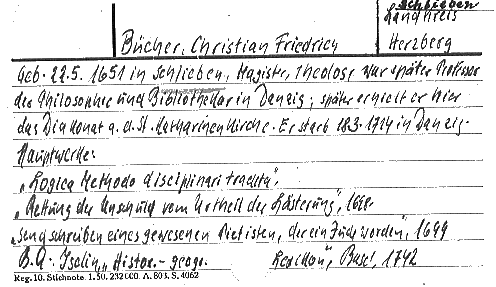 Schlieben
Landkreis
Herzberg
Bücher, Christian Friedrich
Geb. 22.5. 1651 in Schlieben, Magister, Theologe war später Professor
der Philosophie und Bibliothekar in Danzig; später erhielt er hier
das Diakonat a. d. St. Katharinenkirche. Er starb 18.3. 1714 in Danzig.
Hauptwerke:
„Logica Methodo disciplinari tradita",
„Rettung der Unschuld vom Urtheil der Lästerung", 1698.
„Sendschreiben eines gewesenen Pietisten, der ein Jude worden", 1699
B. Q.: Iselin, „Histor.- geogr. Lexikon", Basel, 1742
Reg. 10. Stichnote. 1. 50. 232 000. A. 803. S. 4062